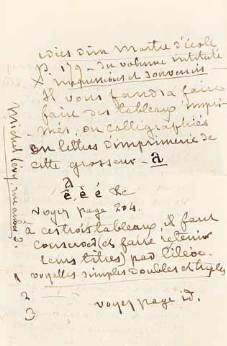 idées d'un maître d'école
p. 179 - du volume intitulé
X impressions et souvenirs
Il vous faudra faire
faire des tableaux impri-
més, ou calligraphiés
en lettres d'imprimerie de
cette grosseur - a
a
e è é &c
Voyez page 204.
à ces trois tableaux, il faut
conserver (et faire retenir
leurs titres) par l'élève.
voyelles simples doubles et triples
1
2
3
voyez page id.
Michel Lévy, rue